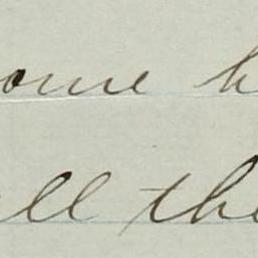 ome h
ell the